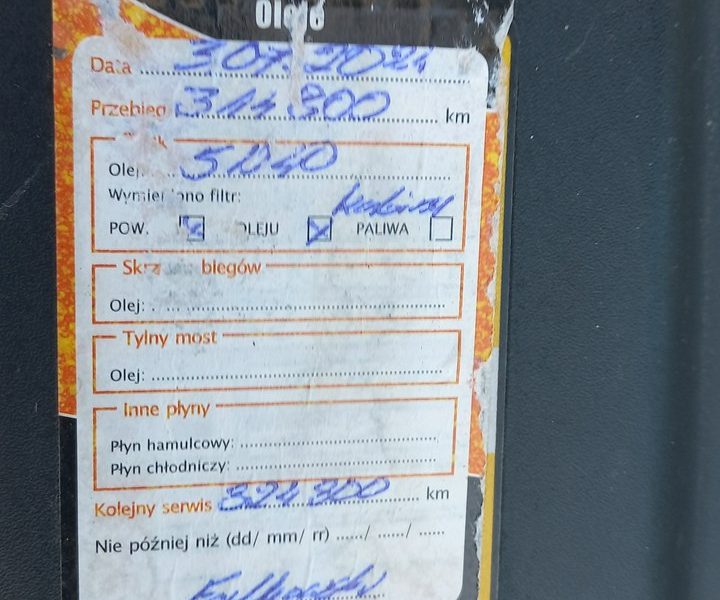 Oleje
Data 307.2021
Przebieg 314 300 km
Silnik
Olej 5W40
Wymieniono filtr:
kabiny
POW. OLEJU PALIWA
Skrzynia biegów
Olej:
Tylny most
Olej:
Inne płyny
Płyn hamulcowy:
Płyn chłodniczy:
Kolejny serwis 324 300 km
Nie później niż (dd/ mm/ rr) ....../ ....../ ......